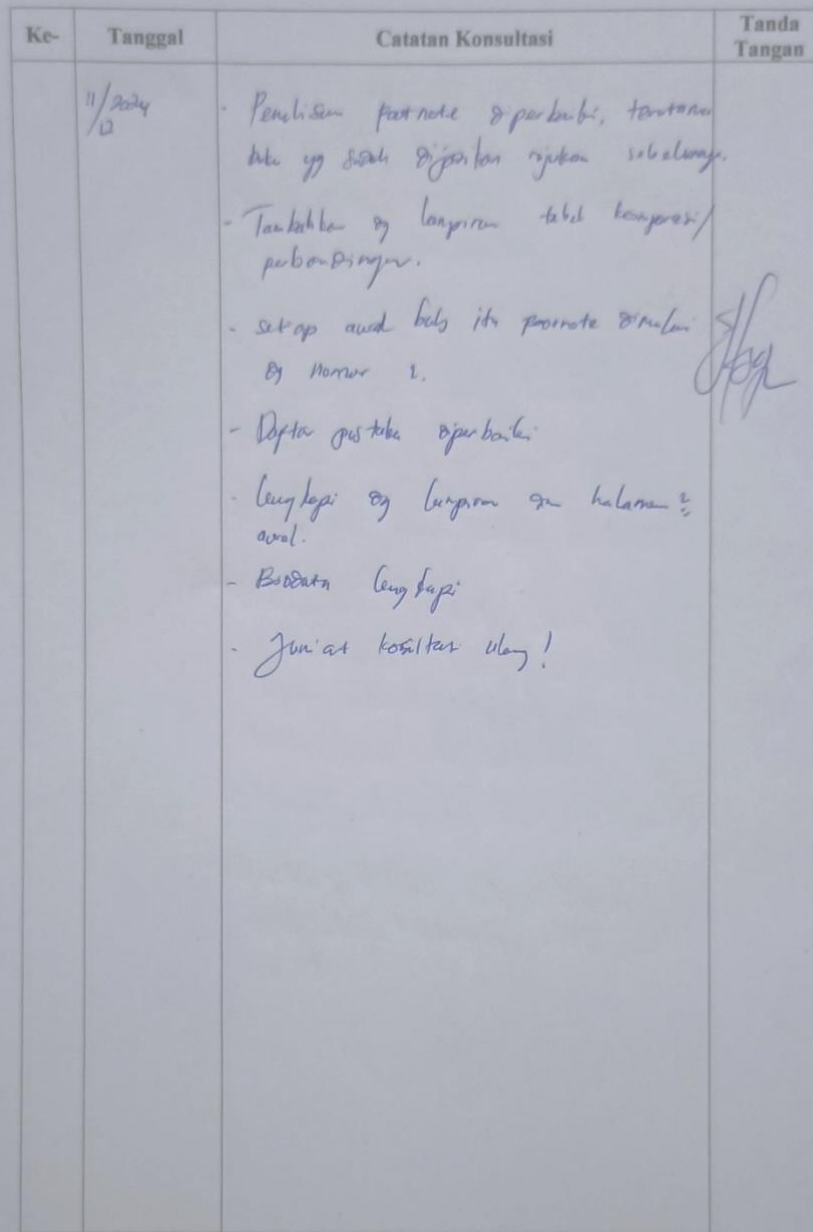 Ke-
Tanggal
Catatan Konsultasi
Tanda
Tangan
11/2024
/12
- Penulisan footnote diperbaiki, terutama
buku yg sudah dijadikan rujukan sebelumnya.
- Tambahkan dg lampiran tabel komparasi/
perbandingan.
- setiap awal bab itu footnote dimulai
dg nomor 1.
- Daftar pustaka diperbaiki
- lengkapi dg lampiran dan halaman 2
awal.
- Biodata lengkapi
- Jum'at konsultasi ulang!